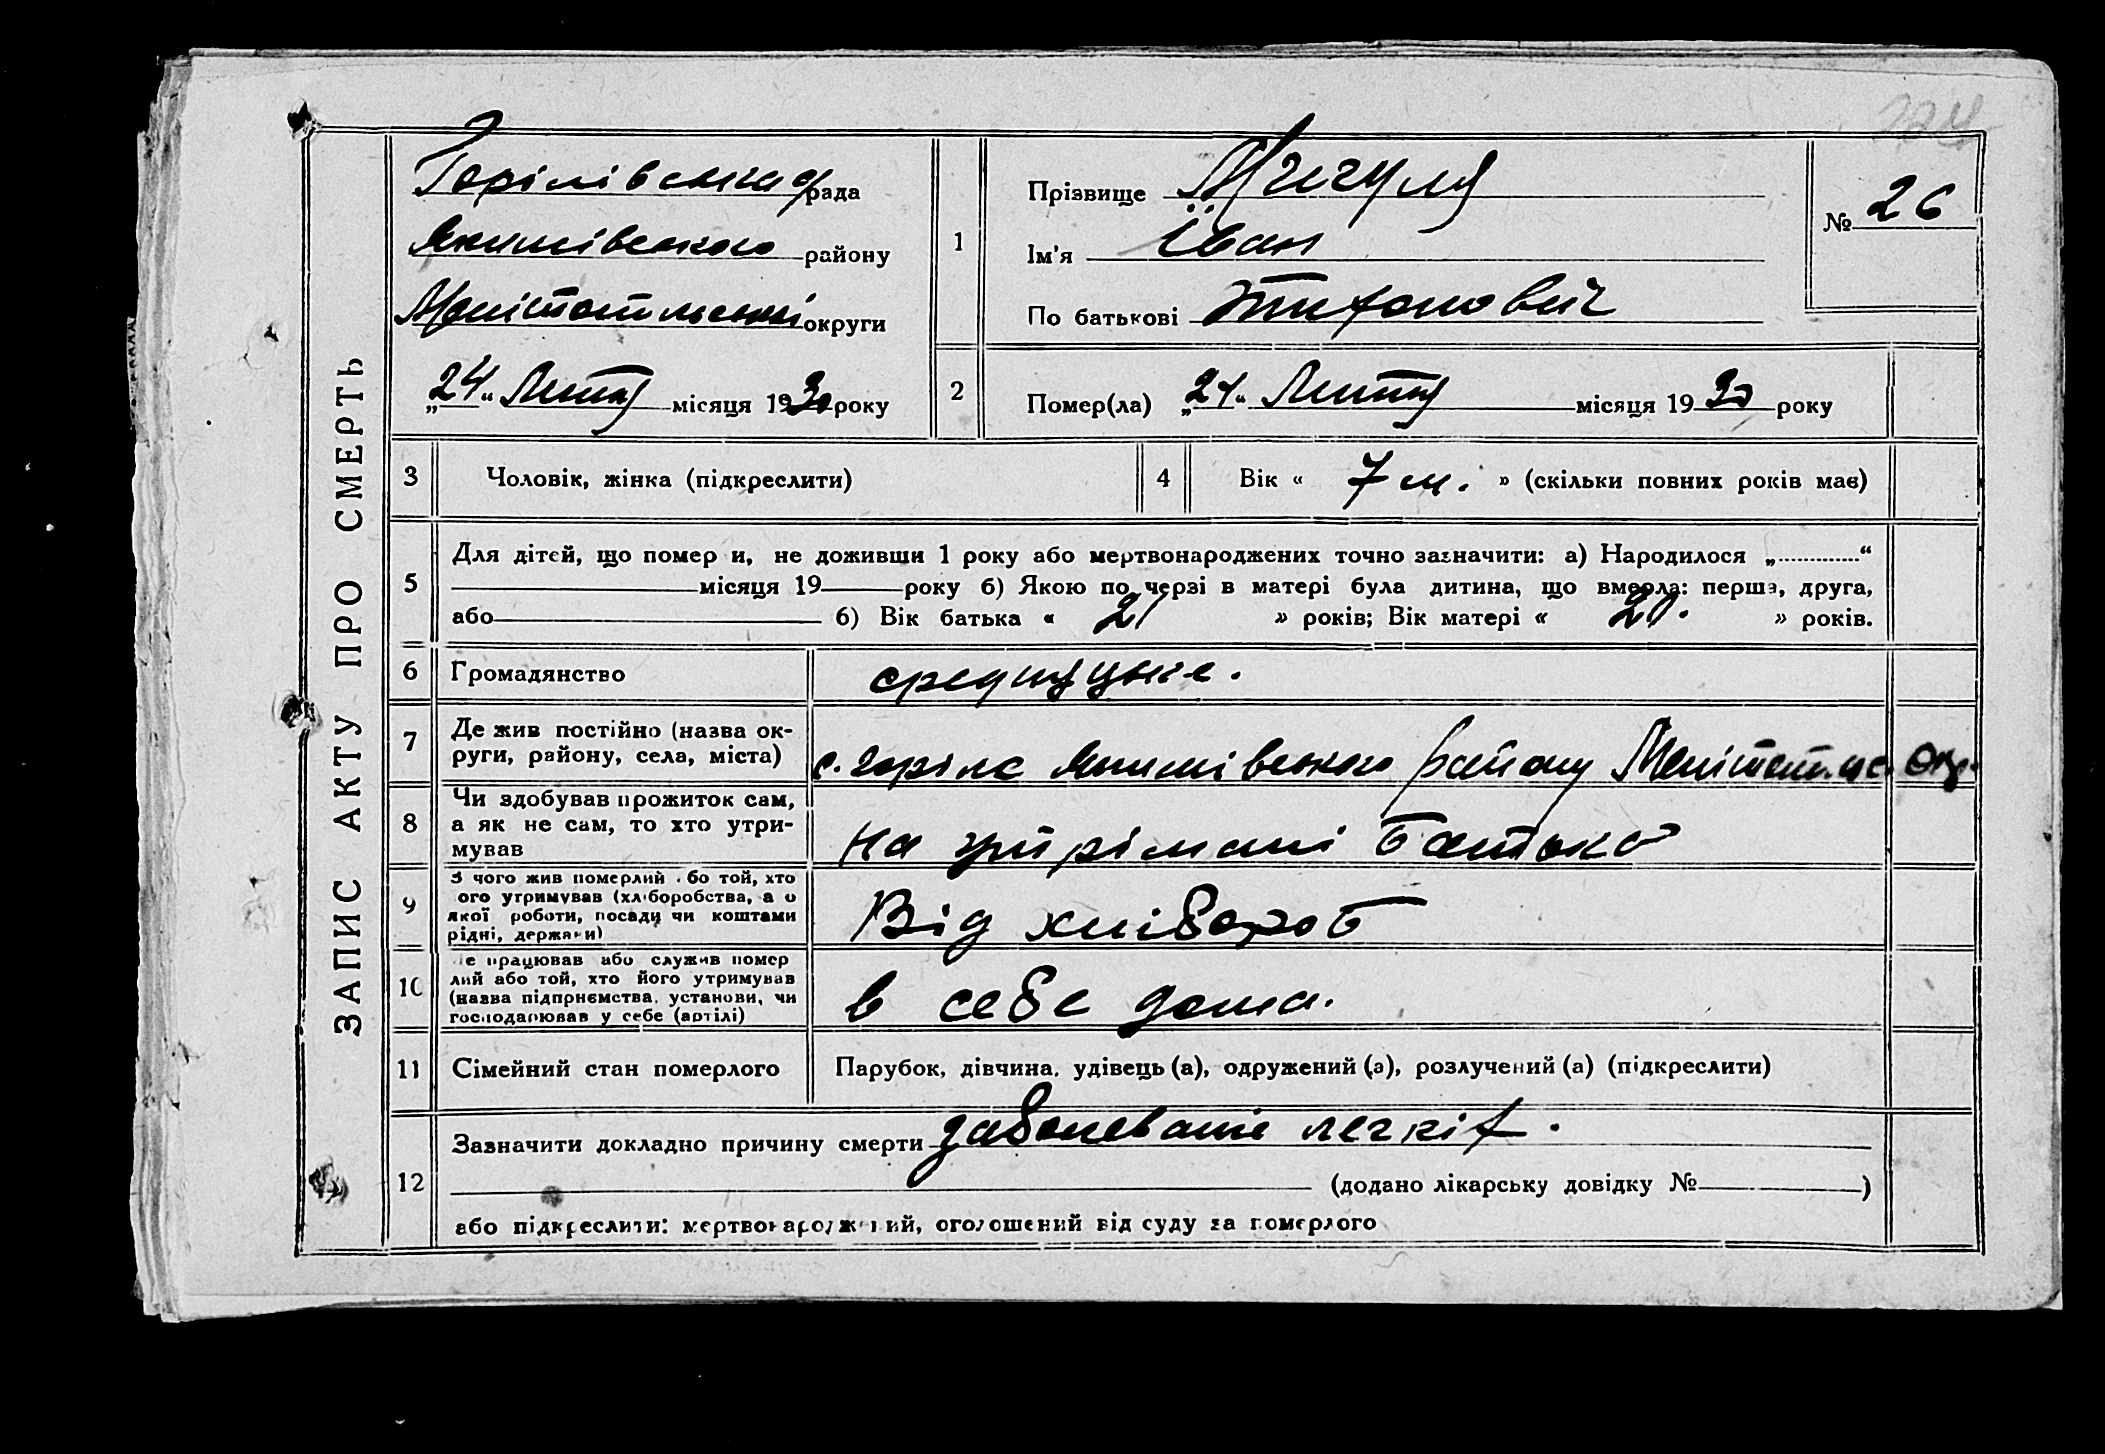 224
ЗАПИС АКТУ ПРО СМЕРТЬ
Горілівська рада
Якимівського району
Мелітопільськ округи
„24“ Лютого місяця 1930 року
1
Прізвище
Ім'я Іван
По батькові Тихонович
№ 26
2
Помер(ла) „24“ Лютого місяця 1930 року
3
Чоловік, жінка (підкреслити)
4
Вік « 7 м. » (скільки повних років має)
5
Для дітей, що помер и, не доживши 1 року або мертвонароджених точно зазначити: а) Народилося „ “
місяця 19 року б) Якою по черзі в матері була дитина, що вмерла: перша, друга,
або б) Вік батька « 21 » років; Вік матері « 20. » років.
6
Громадянство
7
Де жив постійно (назва ок-
руги, району, села, міста)
с. Якимівського району Окр.
8
Чи здобував прожиток сам,
а як не сам, то хто утри-
мував
на батька
9
З чого жив померлий або той, хто
ого утримував (хліборобства, а о
якої роботи, посади чи коштами
рідні, держави)
Від хлібороб
10
е працював або служив помер
лий або той, хто його утримував
(назва підприємства, установи, чи
господарював у себе (артілі)
в себе дома.
11
Сімейний стан померлого
Парубок, дівчина, удівець (а), одружений (а), розлучений (а) (підкреслити)
12
Зазначити докладно причину смерти заболеваніе легкіх.
(додано лікарську довідку № )
або підкреслити: мертвонароджений, оголошений від суду за померлого